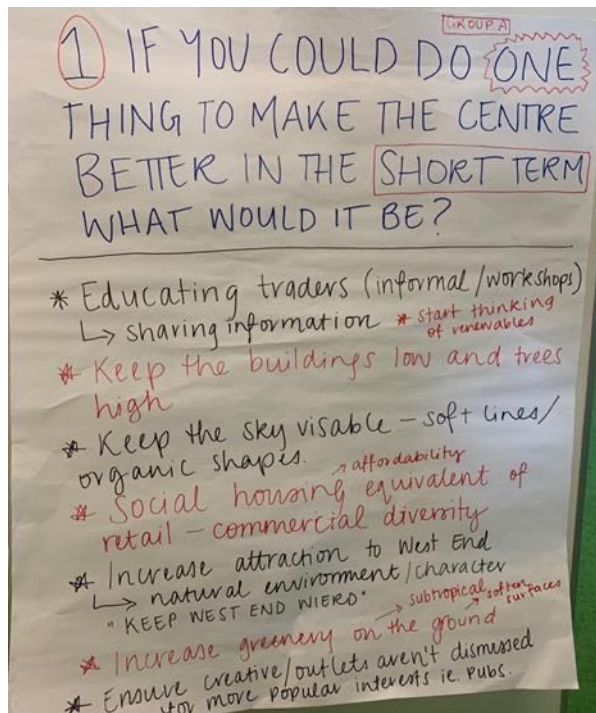 GROUP A
1 IF YOU COULD DO ONE
THING TO MAKE THE CENTRE
BETTER IN THE SHORT TERM
WHAT WOULD IT BE?
* Educating traders (informal/workshops)
↳ sharing information * start thinking
of renewables
* Keep the buildings low and trees
high
* Keep the sky visable – soft lines/
organic shapes.
↗ affordability
* Social housing equivalent of
retail – commercial diversity
* Increase attraction to West End
↳ natural environment/character
"KEEP WEST END WIERD"
→ subtropical → soften
surfaces
* Increase greenery on the ground
* Ensure creative/outlets aren't dismissed
for more popular interests ie. pubs.